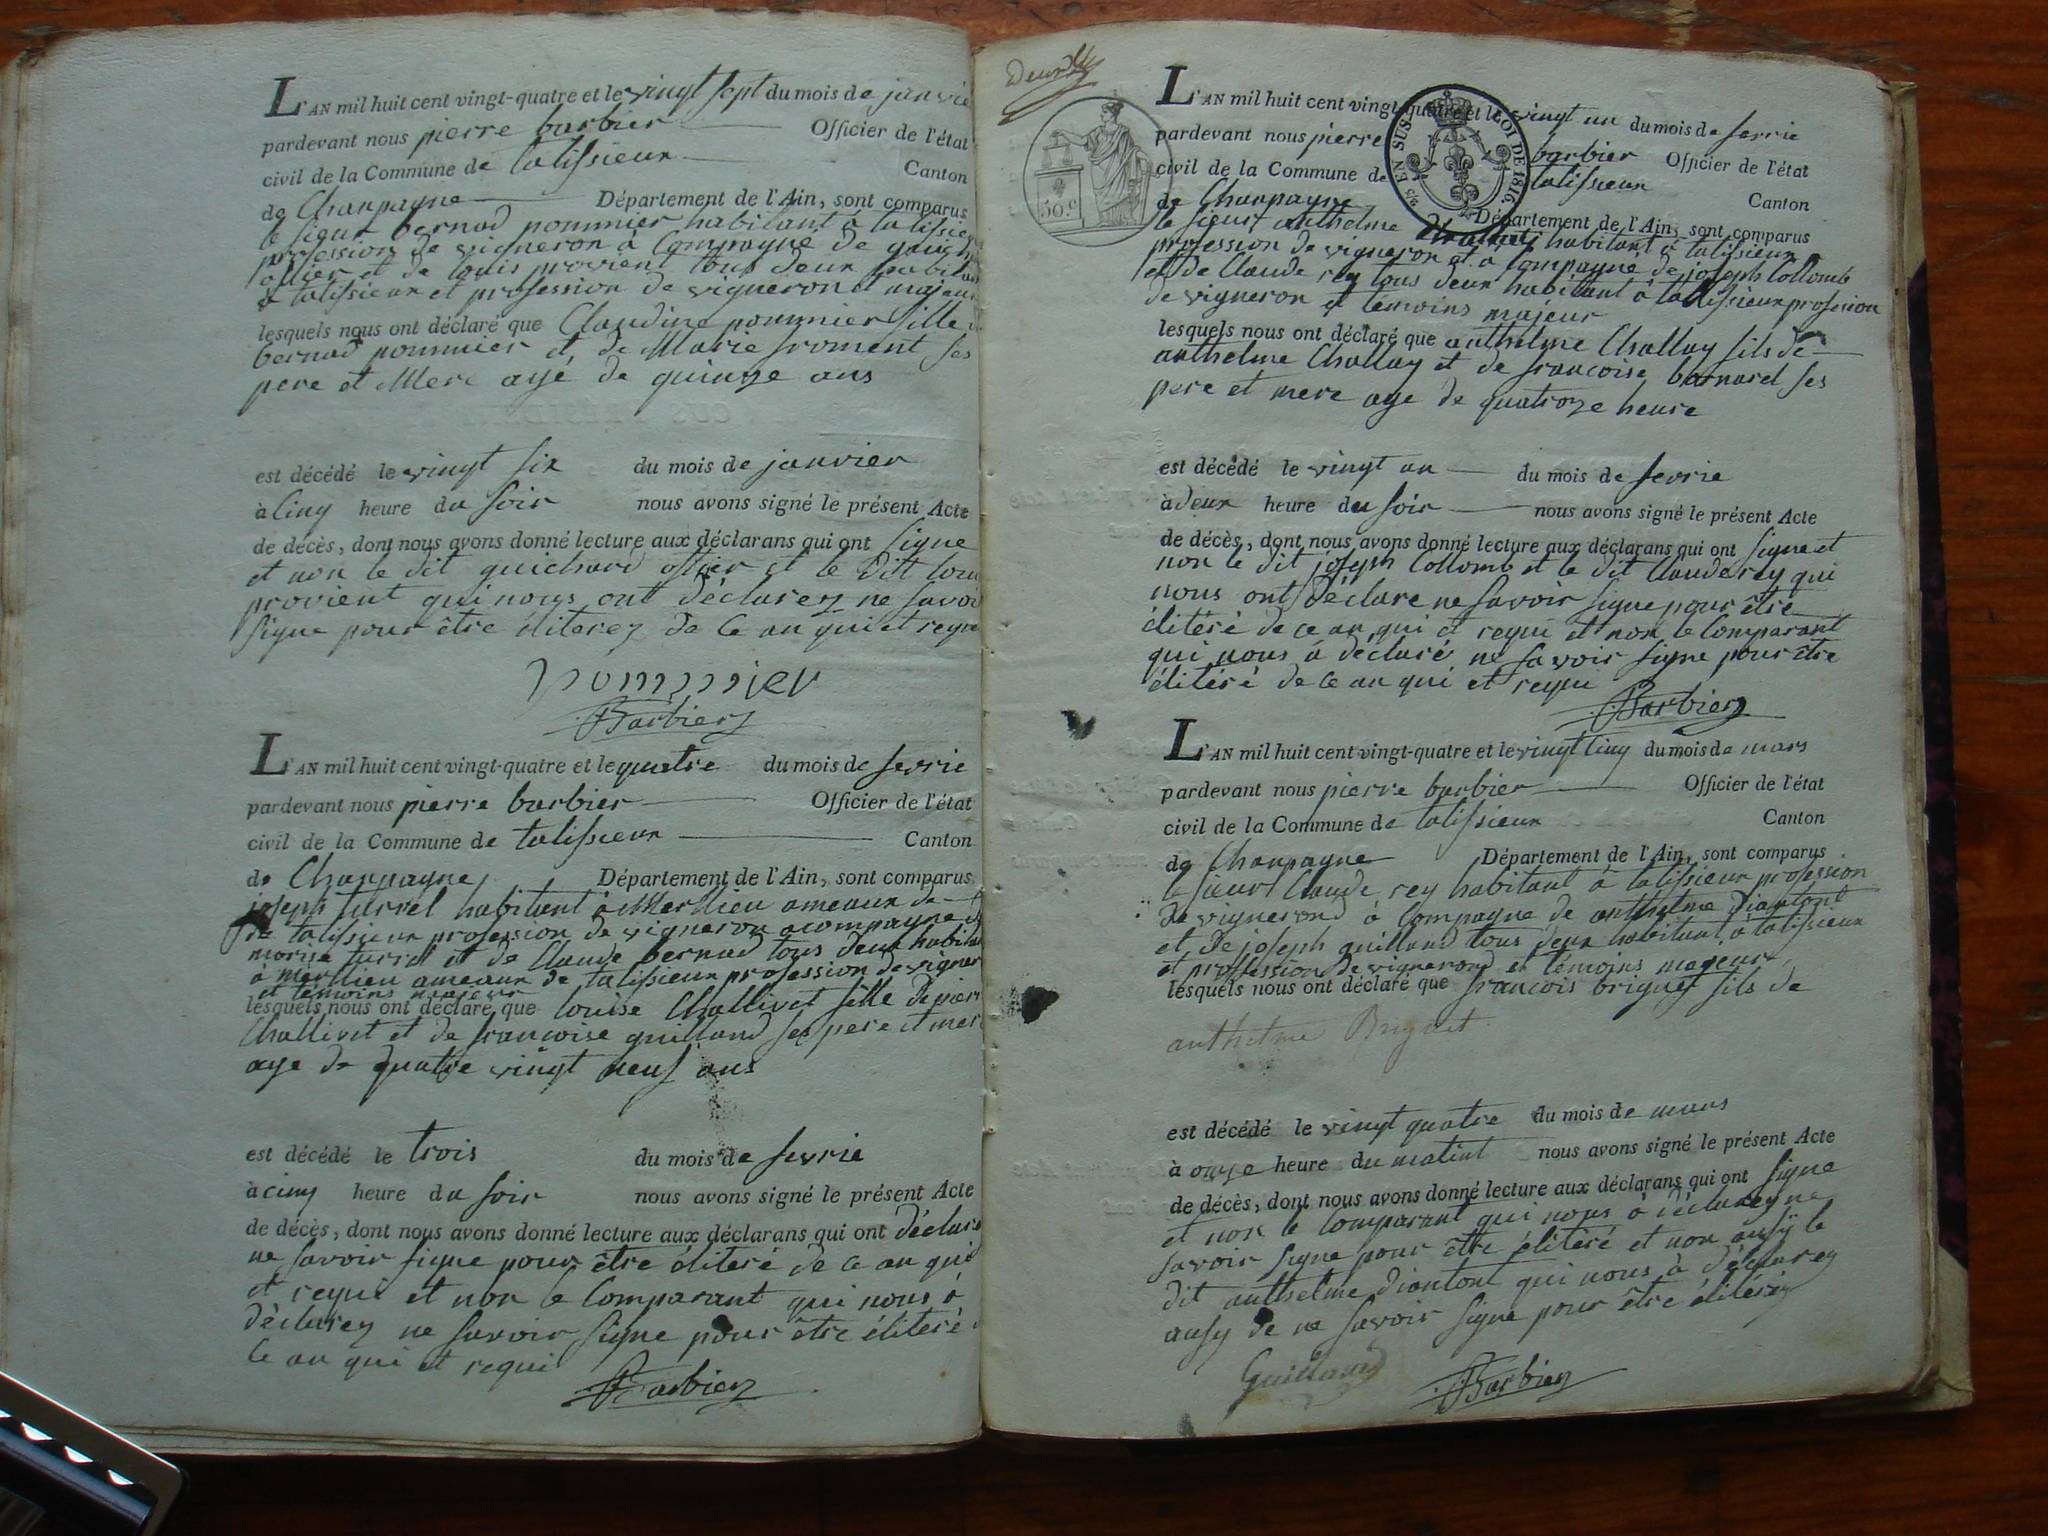 L'AN mil huit cent vingt-quatre et le vingt sept du mois de janvie
pardevant nous pierre barbier Officier de l'état
civil de la Commune de talissieux Canton
de Chanpagne Département de l'Ain, sont comparus
le sieur bernad pommier habitant à talissie
profession de vigneron a Compagné de guich
ollier et de louis provient tous deux habitan
a talissieux et profession de vigneron et majeu
lesquels nous ont déclaré que Claudine pommier fille
bernad pommier et de Marie froment ses
pere et Mere agé de quinze ans
est décédé le vingt six du mois de janvier
à Cinq heure du soir nous avons signé le présent Acte
de décès, dont nous avons donné lecture aux déclarans qui ont signe
et non le dit guichard ollier et le dit loui
provient qui nous ont déclarez ne savoi
signe pour être éliterez de Ce an qui et reque
pommier
Barbier
L'AN mil huit cent vingt-quatre et le quatre du mois de fevrie
pardevant nous pierre barbier Officier de l'état
civil de la Commune de talissieux Canton
de Chanpagne Département de l'Ain, sont comparus
joseph turrel habitant à Merlieu ameaux de
de talissieux profession de vigneron acompagne d
morise turrel et de Claude bernad tous deux habita
à merlieu ameaux de talissieux profession de vigner
et témoins majeur
lesquels nous ont déclaré que louise Challivet fille de pier
Challivet et de francoise guilland ses pere et mer
age de quatre vingt neuf ans
est décédé le trois du mois de fevrie
à cinq heure du soir nous avons signé le présent Acte
de décès, dont nous avons donné lecture aux déclarans qui ont déclare
ne savoir signe pour être éliteré de Ce an qui
et requi et non le Comparant qui nous à
déclarez ne savoir signe pour être éliteré d
Ce an qui et requi
Barbier
50.c
5/10 EN SUS LOI DE 1816.
L'AN mil huit cent vingt-quatre et le vingt un du mois de fevrie
pardevant nous pierre barbier Officier de l'état
civil de la Commune de talissieux Canton
de Chanpagne Département de l'Ain, sont comparus
le sieur anthelme habitant à talissieux
profession de vigneron et à Compagné de joseph Collomb
et de Claude rey tous deux habitant à talissieux profession
de vigneron et témoins majeur
lesquels nous ont déclaré que anthelme Challay fils de
anthelme Challay et de francoise barnard ses
pere et mere age de quatorze heure
est décédé le vingt un du mois de fevrie
à deux heure du soir nous avons signé le présent Acte
de décès, dont nous avons donné lecture aux déclarans qui ont signe et
non le dit joseph Collomb et le dit Claude rey qui
nous ont déclare ne savoir signe pour être
éliteré de ce an qui et requi et non le Comparant
qui nous à déclaré ne savoir signe pour être
éliteré de Ce an qui et requi
Barbier
L'AN mil huit cent vingt-quatre et le vingt Cinq du mois de mars
pardevant nous pierre barbier Officier de l'état
civil de la Commune de talissieux Canton
de Chanpagne Département de l'Ain, sont comparus
le sieur Claude rey habitant à talissieux profession
de vignerond à Compagne de anthelme diantont
et de joseph guilland tous deux habitant à talissieux
et proffession de vignerond et témoins mageur
lesquels nous ont déclaré que francois brignet fils de
anthelme Brignet
est décédé le vingt quatre du mois de mars
à onze heure du matint nous avons signé le présent Acte
de décès, dont nous avons donné lecture aux déclarans qui ont signe
et non le Comparant qui nous à déclarez ne
savoir signe pour être éliteré et non ausy le
dit anthelme diantont qui nous à déclarez
ausy de ne savoir signe pour être éliteré
Guilland
Barbier